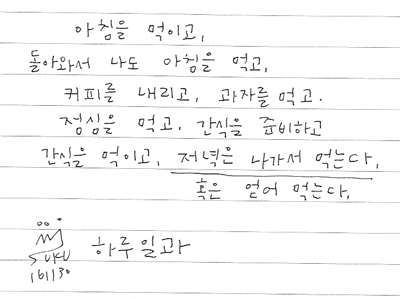 아침을 먹이고,
돌아와서 나도 아침을 먹고,
커피를 내리고, 과자를 먹고.
점심을 먹고, 간식을 준비하고
간식을 먹이고, 저녁은 나가서 먹는다,
혹은 얻어 먹는다,
하루일과
SUKU
161130